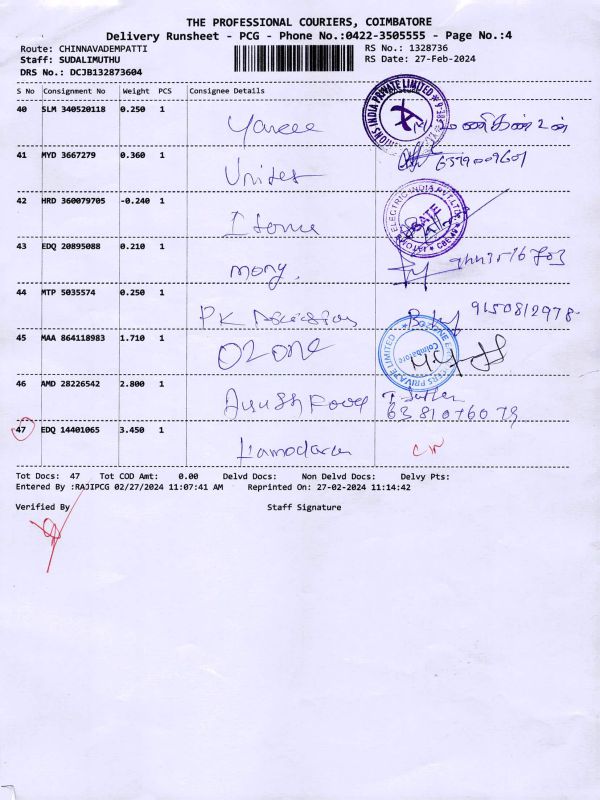 THE PROFESSIONAL COURIERS, COIMBATORE
Delivery Runsheet - PCG - Phone No.:0422-3505555 - Page No.:4
Route: CHINNAVADEMPATTI RS No.: 1328736
Staff: SUDALIMUTHU RS Date: 27-Feb-2024
DRS No.: DCJB132873604
S No Consignment No Weight PCS Consignee Details
40 SLM 340520118 0.250 1
மணிகண்டன்
41 MYD 3667279 0.360 1 Unites
6379009601
42 HRD 360079705 -0.240 1
43 EDQ 20895088 0.210 1 mony.
44 MTP 5035574 0.250 1 PK
9150812978
45 MAA 864118983 1.710 1 OZONE
Coimbatore
46 AMD 28226542 2.800 1 Food
6381076079
47 EDQ 14401065 3.450 1
Tot Docs: 47 Tot COD Amt: 0.00 Delvd Docs: Non Delvd Docs: Delvy Pts:
Entered By :RAJIPCG 02/27/2024 11:07:41 AM Reprinted On: 27-02-2024 11:14:42
Verified By Staff Signature